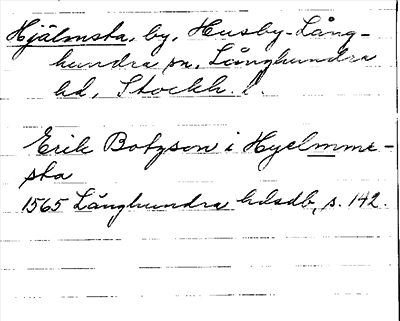 Hjälmsta, by, Husby-Lång-
hundra sn, Långhundra
hd, Stockh. l.
Erik Botzson i Hyelmme-
sta
1565 Långhundra hdsdb, s. 142.